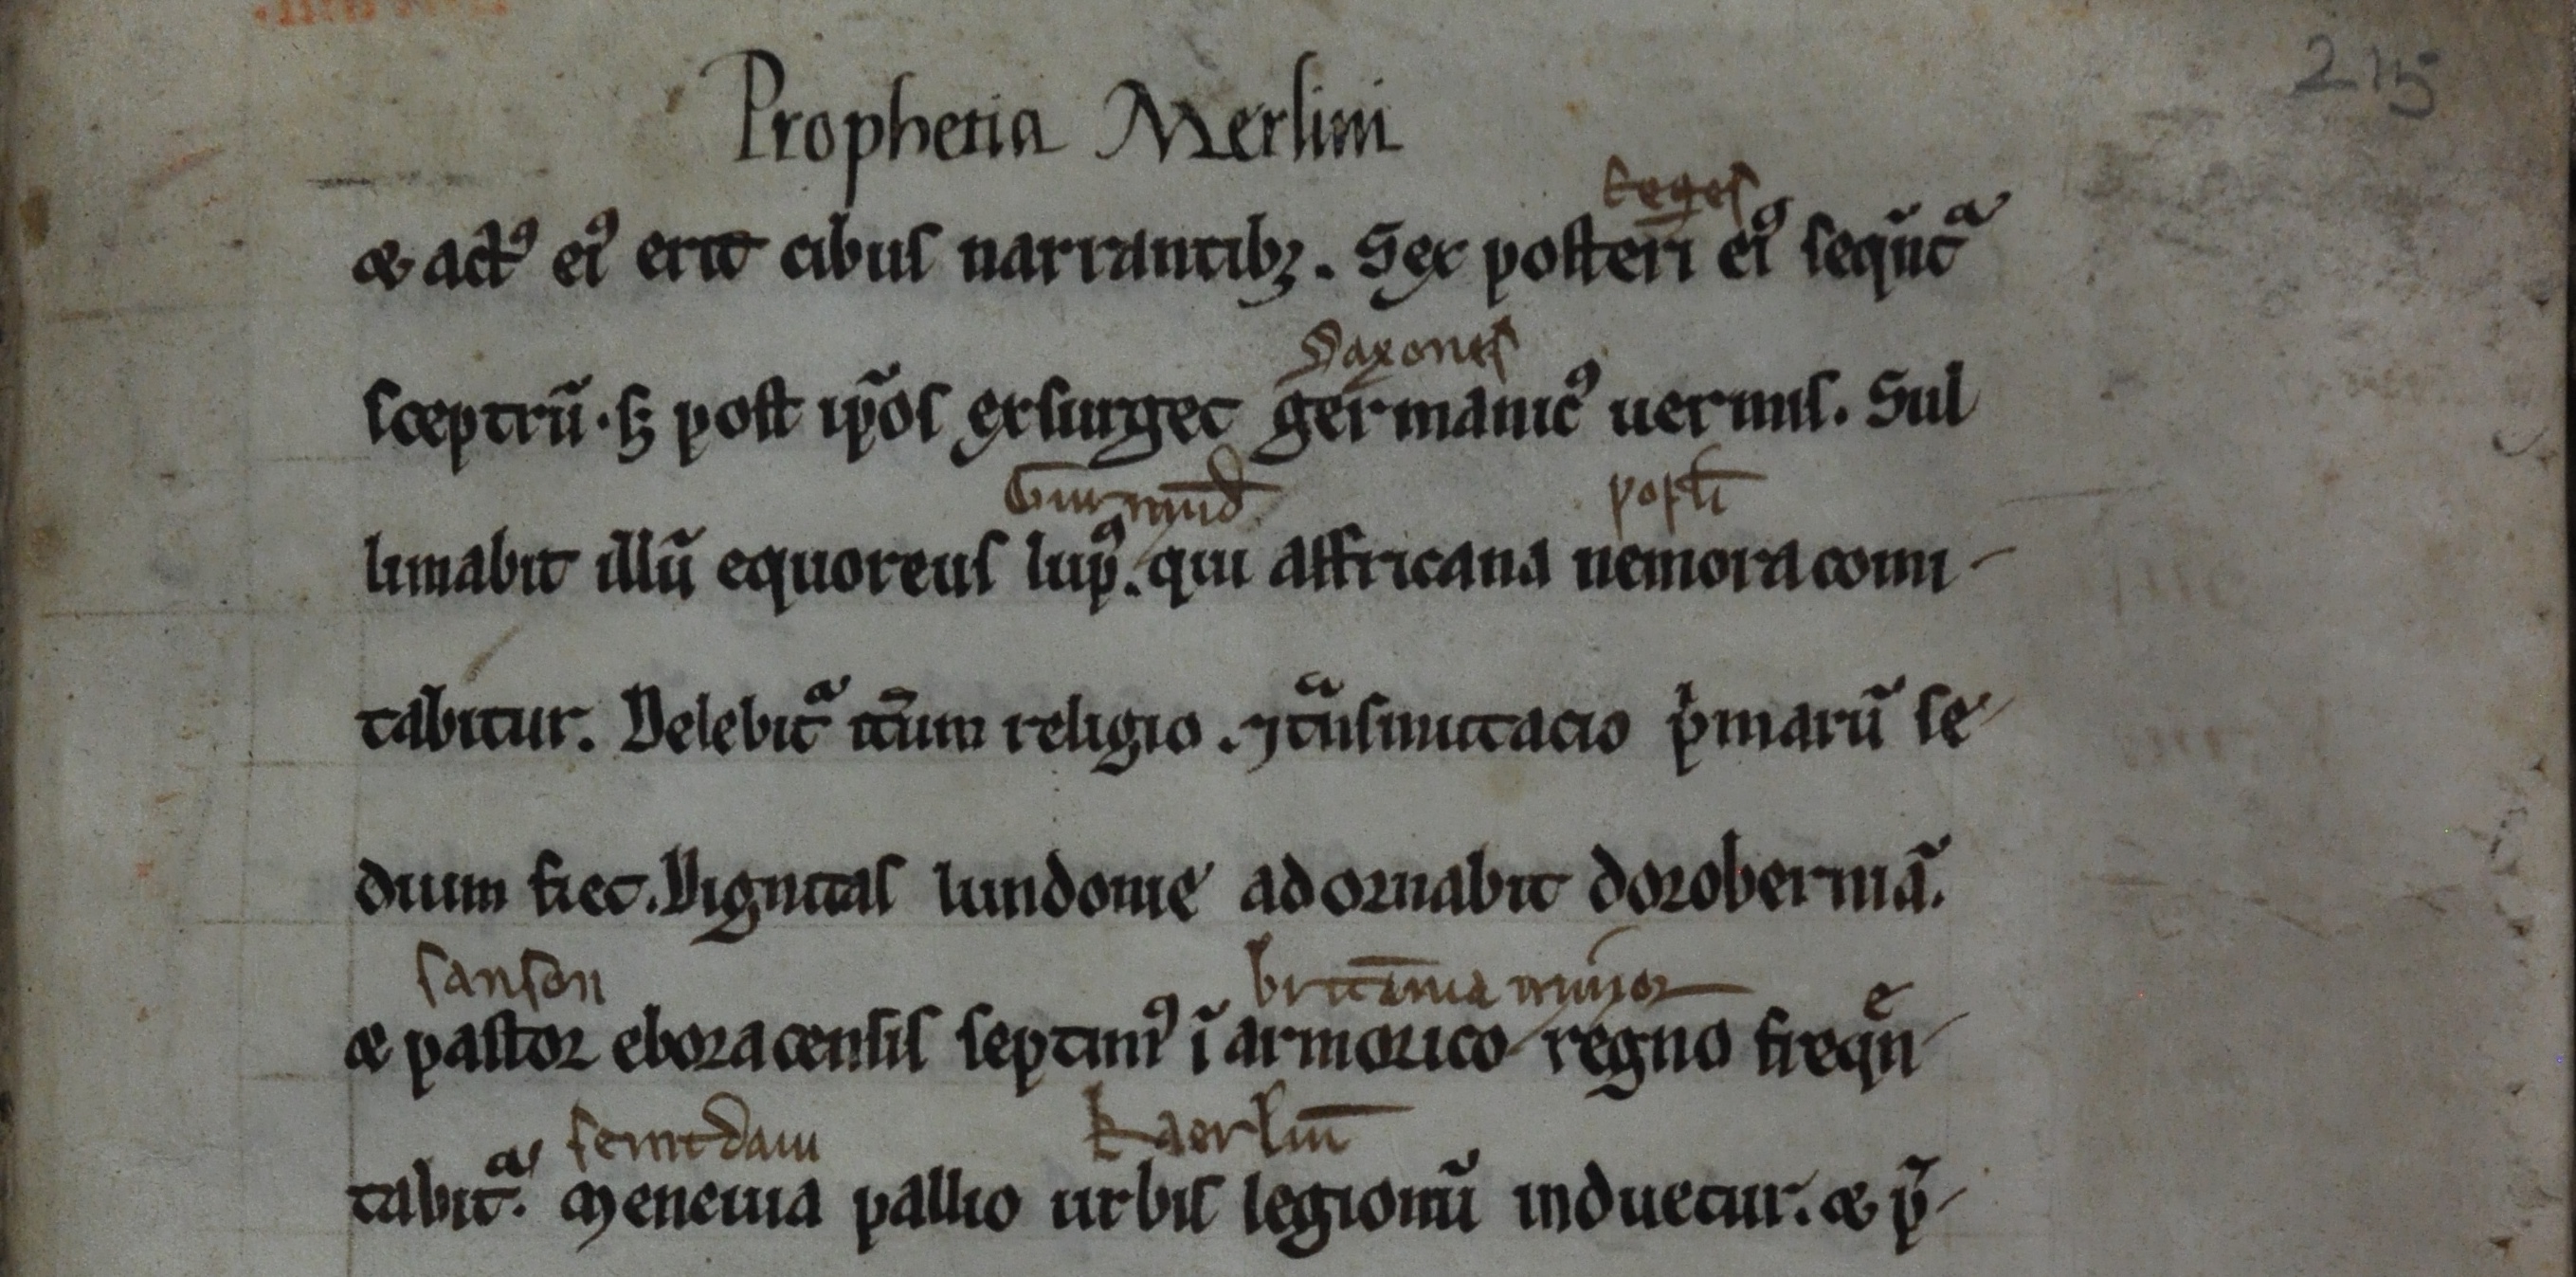 215
Prophetia Merlini
reges
& actꝰ eiꝰ erit cibus narrantibꝫ. Sex posteri eiꝰ sequ̅tᷓ
Saxones
sceptrū. sꝫ post ip̄os exsurget germanicꝰ uermis. Sul
Gurmūd popl̄i
limabit illū equoreus lupꝰ. qui affricana nemora comi-
tabitur. Delebitᷓ iteͬum religio. ⁊ tᷓnsmutacio pͥmarū se-
dium fiet. Dignitas lundonie adornabit doroberniā.
sanson britānia minor
& pastor eboracensis septimꝰ ī armorico regno frequͤn-
semtdaui kaerlīn
tabitᷓ. Meneuia pallio urbis legionū induetur. & p̄-